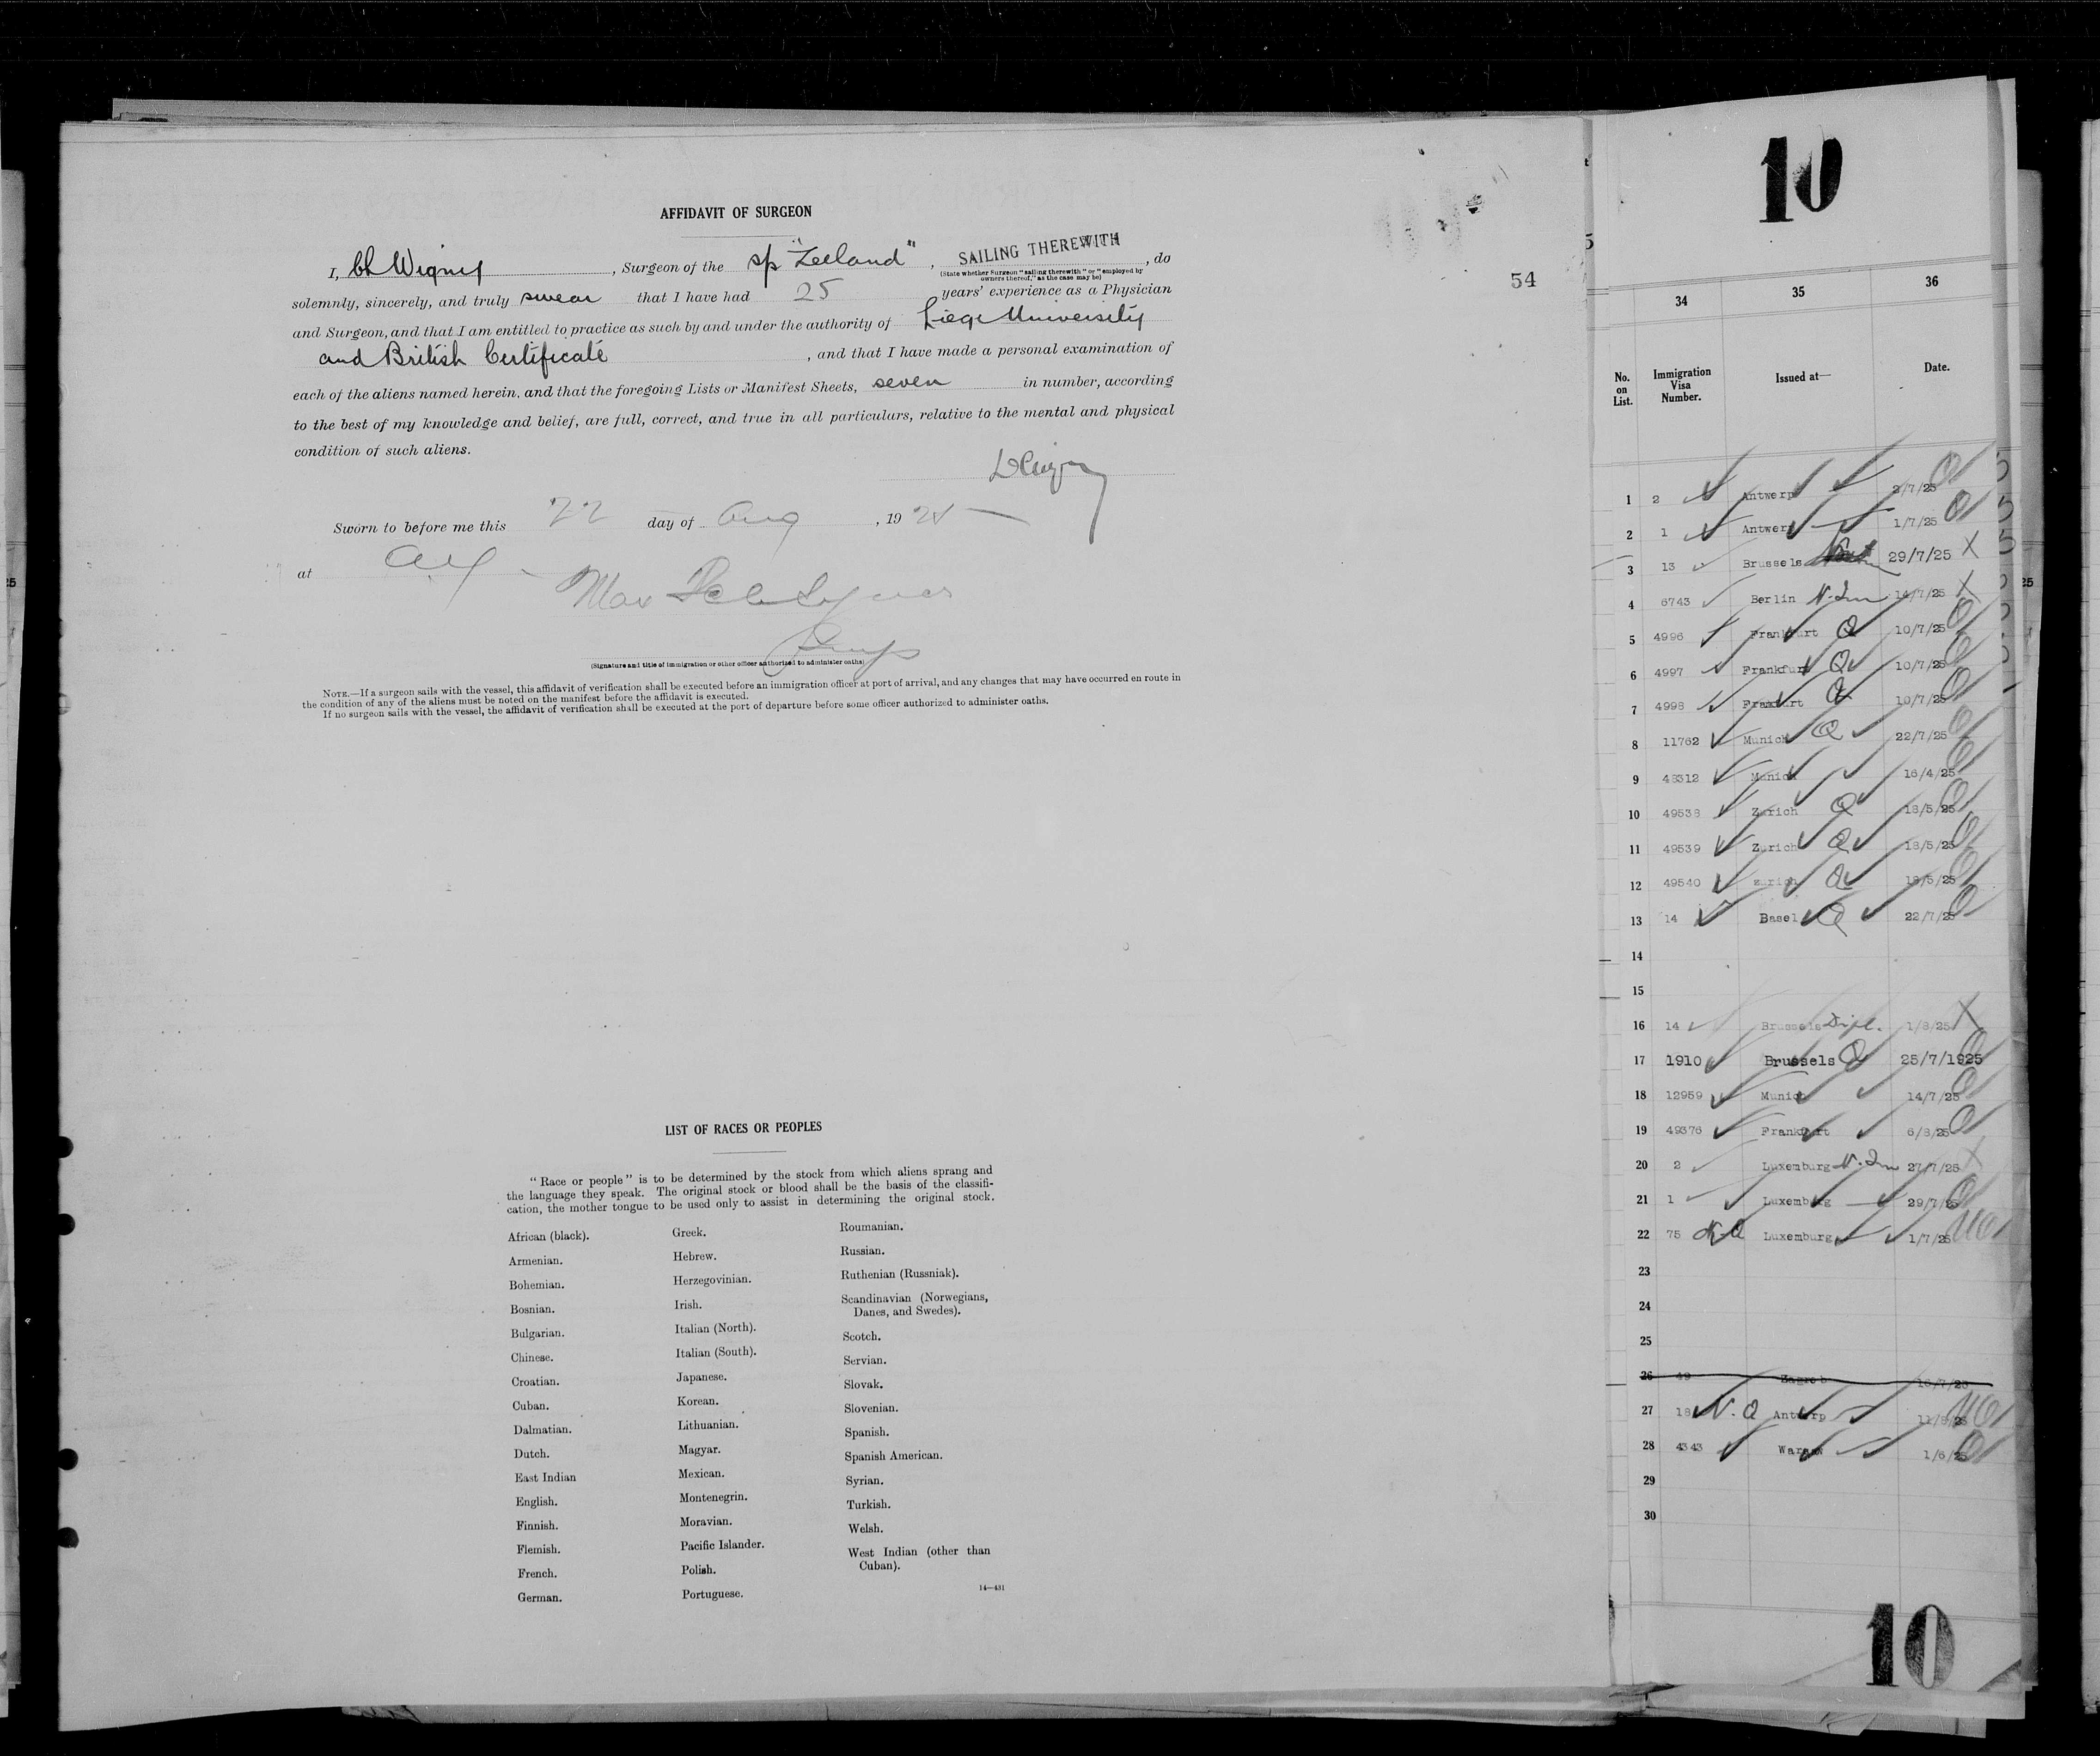 AFFIDAVIT OF SURGEON
I, Ch Wigny, Surgeon of the sp "Zeeland", SAILING THEREWITH, do
(State whether Surgeon "sailing therewith" or "employed by
owners thereof," as the case may be)
solemnly, sincerely, and truly swear that I have had 25 years' experience as a Physician
and Surgeon, and that I am entitled to practice as such by and under the authority of Liege University
and British Certificate, and that I have made a personal examination of
each of the aliens named herein, and that the foregoing Lists or Manifest Sheets, seven in number, according
to the best of my knowledge and belief, are full, correct, and true in all particulars, relative to the mental and physical
condition of such aliens.
Sworn to before me this 22 day of Aug, 1925
at
Max
(Signature and title of immigration or other officer authorized to administer oaths)
NOTE.—If a surgeon sails with the vessel, this affidavit of verification shall be executed before an immigration officer at port of arrival, and any changes that may have occurred en route in
the condition of any of the aliens must be noted on the manifest before the affidavit is executed.
If no surgeon sails with the vessel, the affidavit of verification shall be executed at the port of departure before some officer authorized to administer oaths.
54
LIST OF RACES OR PEOPLES
"Race or people" is to be determined by the stock from which aliens sprang and
the language they speak. The original stock or blood shall be the basis of the classifi-
cation, the mother tongue to be used only to assist in determining the original stock.
African (black).
Armenian.
Bohemian.
Bosnian.
Bulgarian.
Chinese.
Croatian.
Cuban.
Dalmatian.
Dutch.
East Indian
English.
Finnish.
Flemish.
French.
German.
Greek.
Hebrew.
Herzegovinian.
Irish.
Italian (North).
Italian (South).
Japanese.
Korean.
Lithuanian.
Magyar.
Mexican.
Montenegrin.
Moravian.
Pacific Islander.
Polish.
Portuguese.
Roumanian.
Russian.
Ruthenian (Russniak).
Scandinavian (Norwegians,
Danes, and Swedes).
Scotch.
Servian.
Slovak.
Slovenian.
Spanish.
Spanish American.
Syrian.
Turkish.
Welsh.
West Indian (other than
Cuban).
14—431
10
34 35 36
No. on List. Immigration Visa Number. Issued at— Date.
1 2 Antwerp 2/7/25
2 1 Antwerp 1/7/25
3 13 Brussels 29/7/25 X
4 6743 Berlin N. Im 14/7/25 X
5 4996 Frankfurt Q 10/7/25
6 4997 Frankfurt Q 10/7/25
7 4998 Frankfurt Q 10/7/25
8 11762 Munich Q 22/7/25
9 48312 Munich 16/4/25
10 49538 Zurich Q 18/5/25
11 49539 Zurich Q 18/5/25
12 49540 zurich Q 18/5/25
13 14 Basel Q 22/7/25
14
15
16 14 Brussels Dipl. 1/8/25 X
17 1910 Brussels Q 25/7/1925
18 12959 Munich 14/7/25
19 49376 Frankfurt 6/8/25
20 2 Luxemburg N. Im 27/7/25 X
21 1 Luxemburg 29/7/25
22 75 N-Q Luxemburg 1/7/25
23
24
25
26 49 Zagreb
27 18 N. Q Antwerp
28 4343 Warsaw 1/6/25
29
30
10